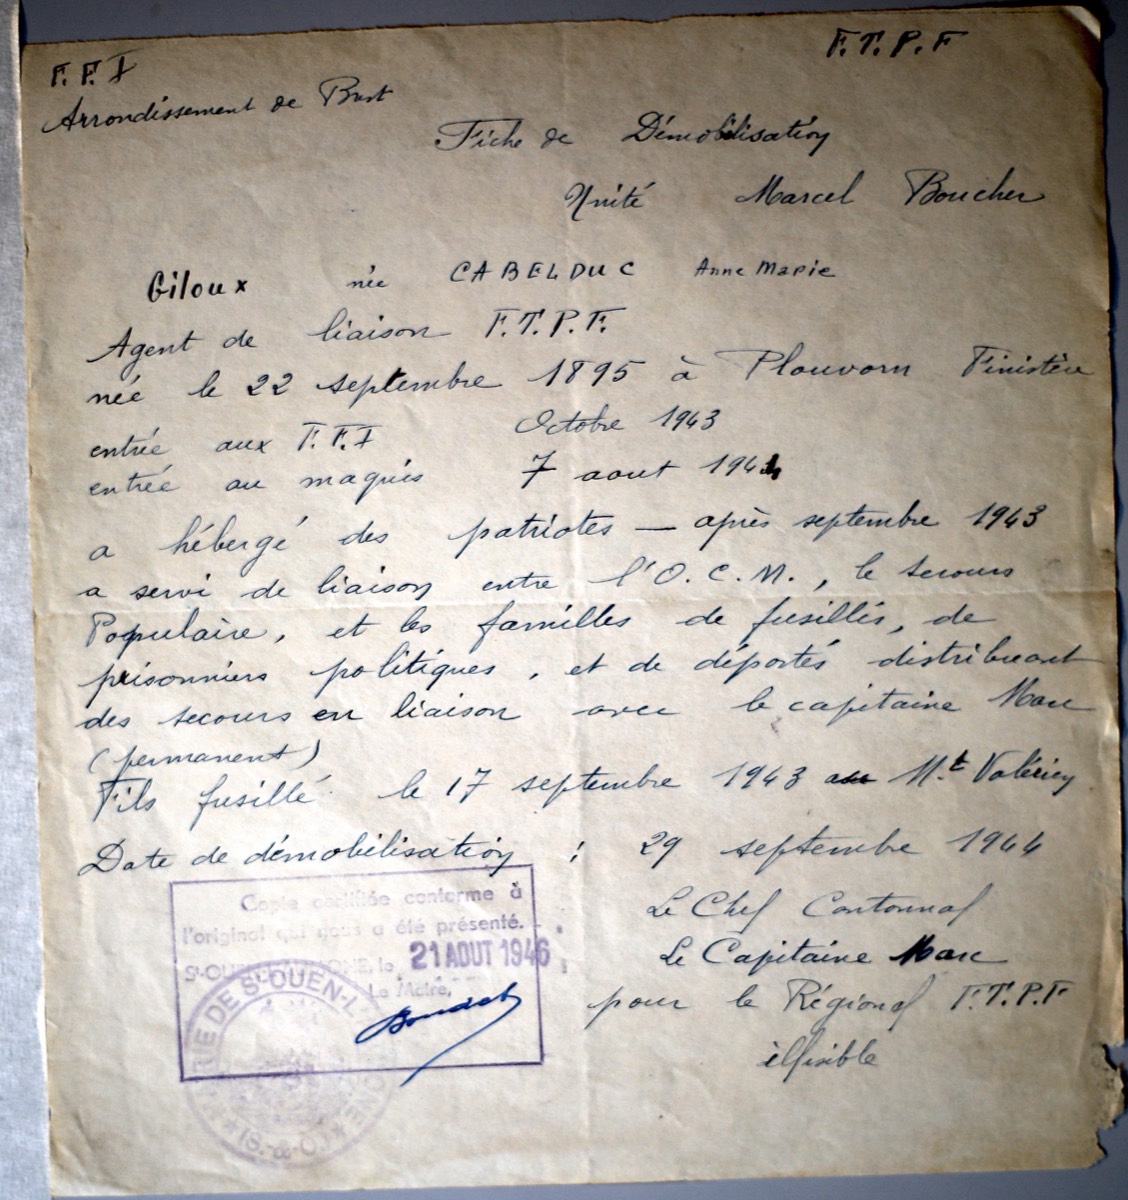 F.F.I
F.T.P.F
Arrondissement de Brest
Fiche de Démobilisation
Unité Marcel Boucher
Giloux née CABELDUC Anne Marie
Agent de liaison F.T.P.F.
née le 22 septembre 1895 à Plouvorn Finistère
entrée aux F.F.I Octobre 1943
entrée au maquis 7 aout 1944
a hébergé des patriotes — après septembre 1943
a servi de liaison entre l'O.C.M., le secours
Populaire, et les familles de fusillés, de
prisonniers politiques, et de déportés distribuant
des secours en liaison avec le capitaine Marc
(permanent)
Fils fusillé le 17 septembre 1943 au Mt Valérien
Date de démobilisation : 29 septembre 1944
Le Chef Cantonnal
Le Capitaine Marc
pour le Régional F.T.P.F
illisible
Copie certifiée conforme à
l'original qui nous a été présenté.
St-OUEN-L'AUMONE, le 21 AOUT 1946
Le Maire,
MAIRIE DE St-OUEN-L'AUMONE
(S.-&-O.)